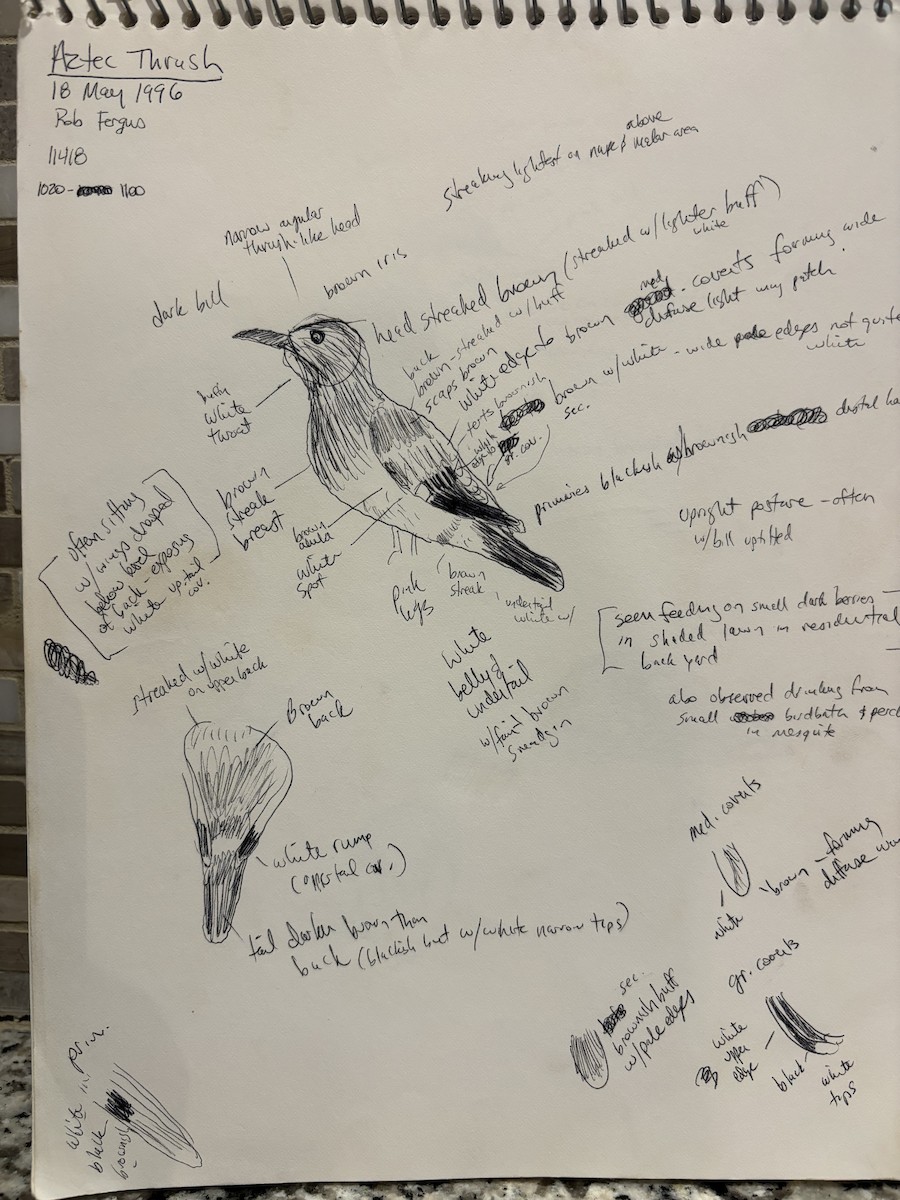 Aztec Thrush
18 May 1996
Rob Fergus
11418
1020 - 1100
streaking lightest on nape & above
malar area
narrow angular
thrush-like head
brown iris
dark bill
head streaked brown (streaked w/lighter buff)
white
back
brown-streaked w/buff
scaps brown
white edge to brown med. coverts forming wide
diffuse light wing patch.
terts brownish
brown w/white - wide edges not quite
white
sec.
white
edge to
gr. cov.
primaries blackish brownish distal
buffy
white
throat
brown
streak
breast
brown
alula
white
spot
pink
legs
brown
streak
undertail
white w/
often sitting
w/ wings drooped
below level
of back - exposing
white up. tail
cov.
upright posture - often
w/bill uptilted
seen feeding on small dark berries
in shaded lawn in residential
back yard
also observed drinking from
small birdbath &
in mesquite
white
belly &
undertail
w/faint brown
streaked w/white
on upper back
Brown
back
white rump
(uppertail cov.)
tail darker brown than
back (blackish but w/white narrow tips)
med. coverts
white
brown - forming
diffuse
gr. coverts
white
upper
edge
black
white
tips
sec.
brownish buff
w/pale edges
white
black
brownish